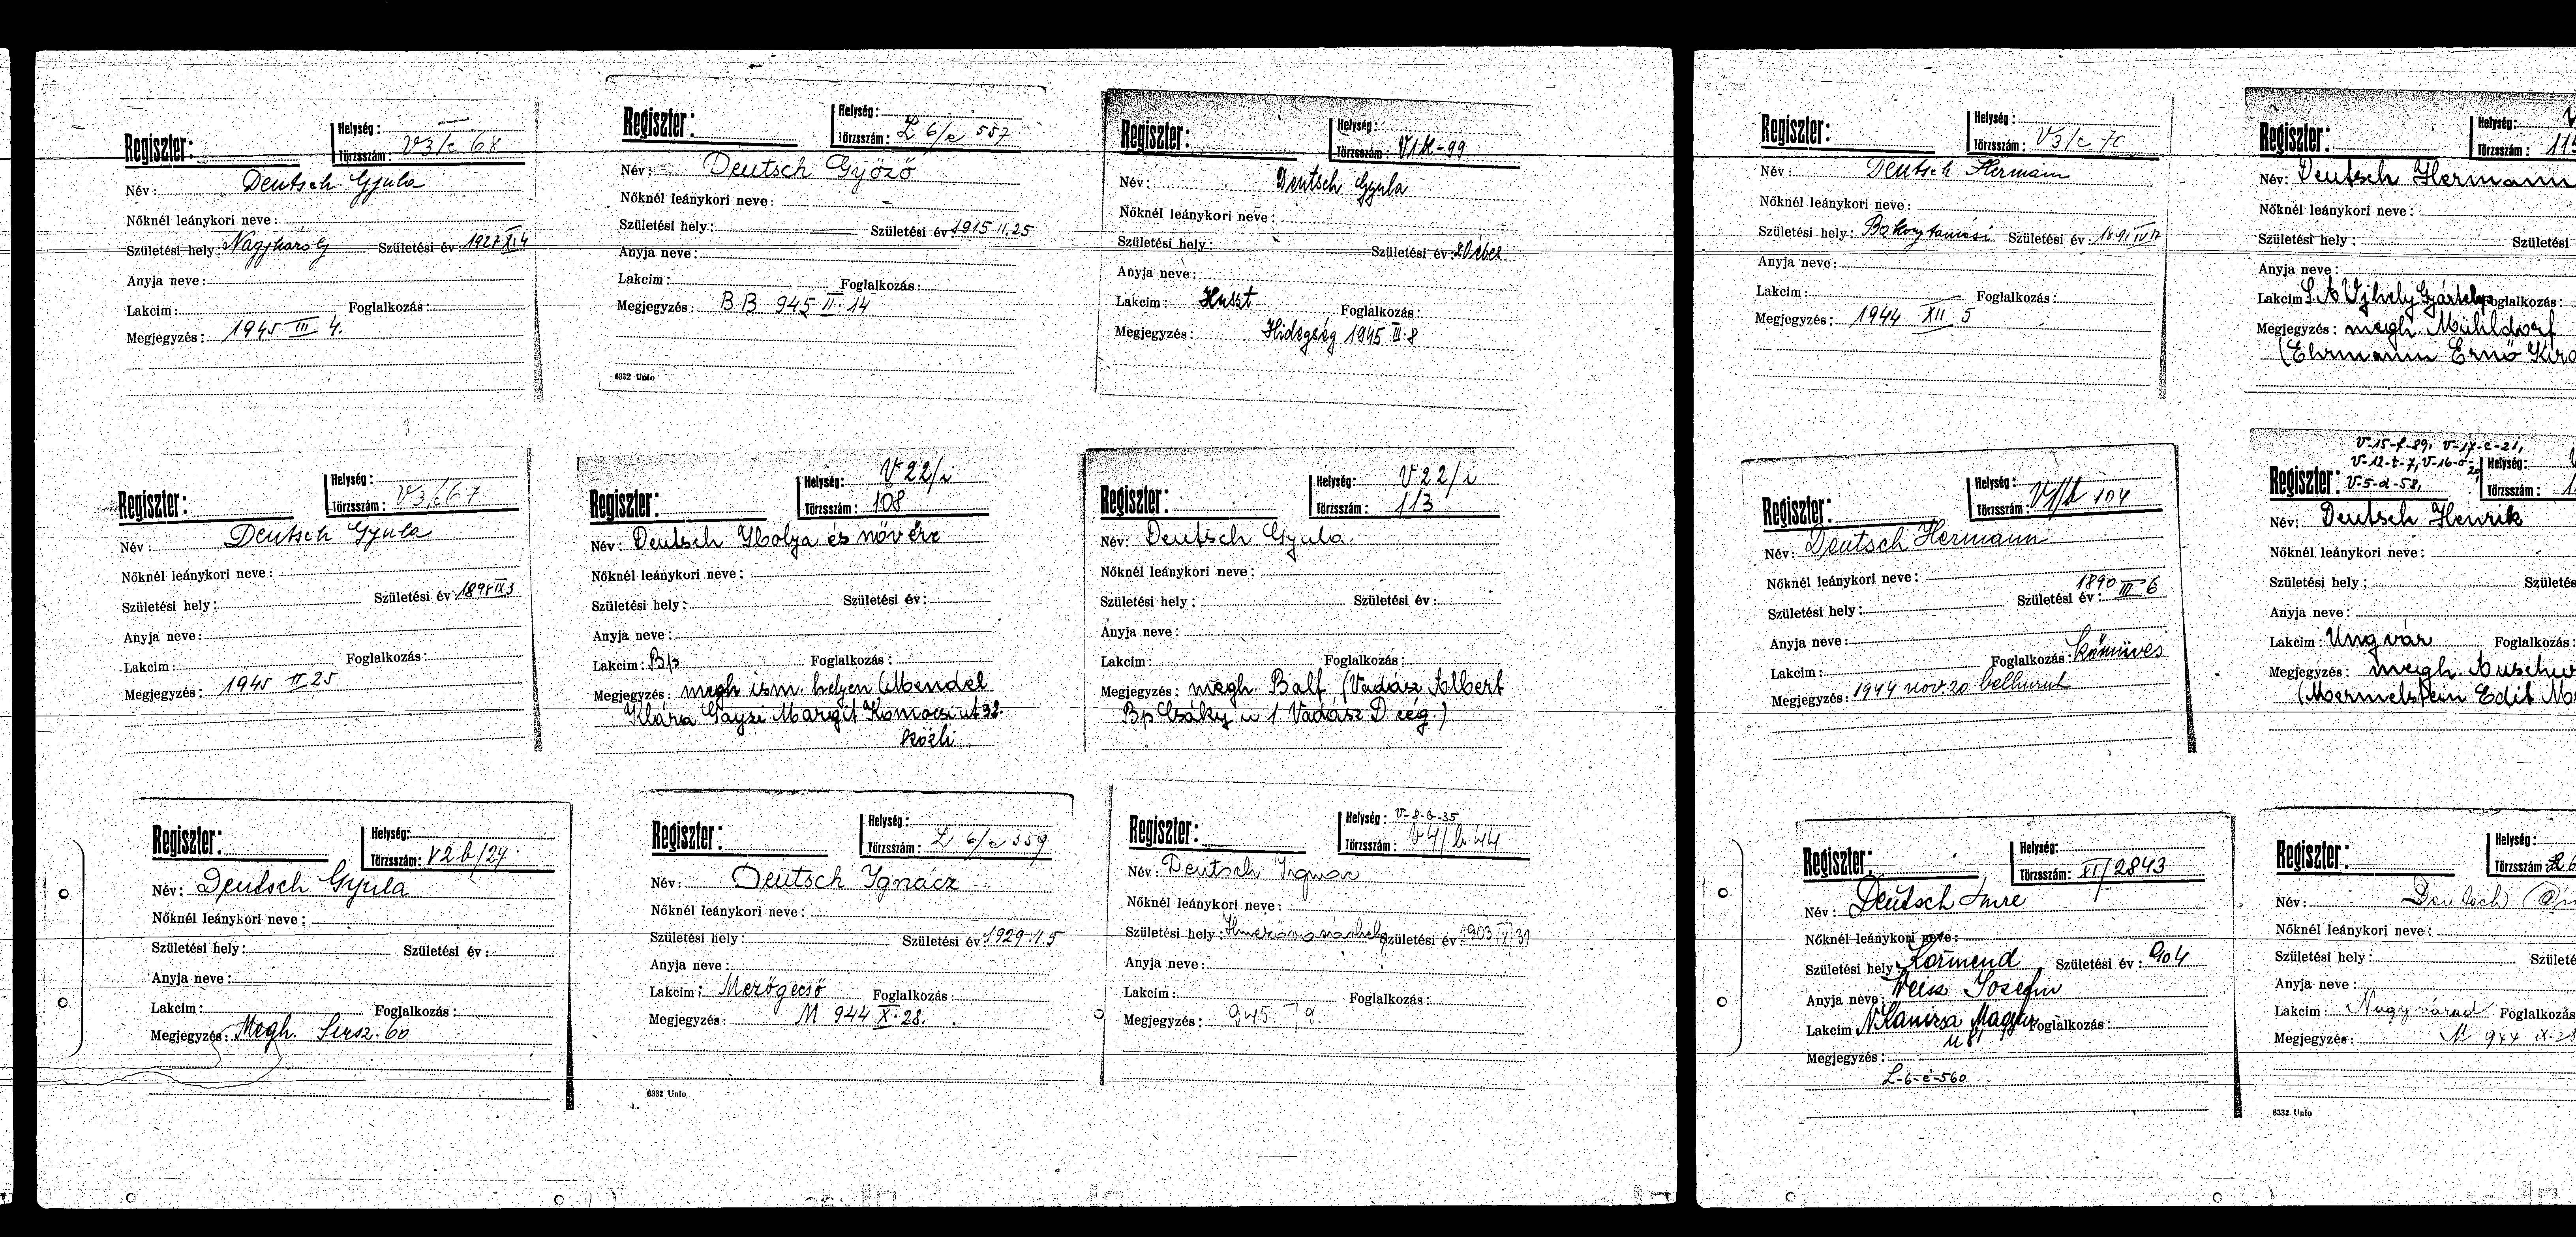 Regiszter:
Helység:
Törzsszám: V3/c 68
Név: Deutsch Gyula
Nőknél leánykori neve:
Születési hely: Születési év: 1927 XI 4
Anyja neve:
Lakcim: Foglalkozás:
Megjegyzés: 1945 III 4.
Regiszter:
Helység:
Törzsszám: L 6/e 557
Név: Deutsch Győző
Nőknél leánykori neve:
Születési hely: Születési év 1915 II.25
Anyja neve:
Lakcim: Foglalkozás:
Megjegyzés: BB 945 II. 14
6332 Unio
Regiszter:
Helység:
Törzsszám: 99
Név: Deutsch Gyula
Nőknél leánykori neve:
Születési hely: Születési év: 20 éves
Anyja neve:
Lakcim: Huszt Foglalkozás:
Megjegyzés: Hidegség 1945 III. 8
Regiszter:
Helység:
Törzsszám: V3/c 67
Név: Deutsch Gyula
Nőknél leánykori neve:
Születési hely: Születési év: IX 3
Anyja neve:
Lakcim: Foglalkozás:
Megjegyzés: 1945 II 25
Regiszter:
Helység: V22/i
Törzsszám: 108
Név: Deutsch Ibolya és növére
Nőknél leánykori neve:
Születési hely: Születési év:
Anyja neve:
Lakcim: Bp Foglalkozás:
Megjegyzés: megh ism. helyen (Mendel
Klára Margit ut 32.
közli
Regiszter:
Helység: V22/i
Törzsszám: 113
Név: Deutsch Gyula
Nőknél leánykori neve:
Születési hely: Születési év:
Anyja neve:
Lakcim: Foglalkozás:
Megjegyzés: megh. Balf (Vadász Albert
Bp Csáky u 1 Vadász D cég.)
Regiszter:
Helység:
Törzsszám: V2b/24
Név: Deutsch Gyula
Nőknél leánykori neve:
Születési hely: Születési év:
Anyja neve:
Lakcim: Foglalkozás:
Megjegyzés: Megh.
Regiszter:
Helység:
Törzsszám: L 6/e 559
Név: Deutsch Ignácz
Nőknél leánykori neve:
Születési hely: Születési év: 1929.
Anyja neve:
Lakcim: Mezőgecső Foglalkozás:
Megjegyzés: M 944 X. 28.
6332 Unio
Regiszter:
Helység:
Törzsszám: V4/b 44
Név: Deutsch Ignac
Nőknél leánykori neve:
Születési hely: Születési év 1903
Anyja neve:
Lakcim: Foglalkozás:
Megjegyzés: 945.
Regiszter:
Helység:
Törzsszám: V3/c 70
Név: Deutsch Hermann
Nőknél leánykori neve:
Születési hely: Bakonytamási Születési év: 1891 IV 17
Anyja neve:
Lakcim: Foglalkozás:
Megjegyzés: 1944 XII 5
Regiszter:
Helység:
Törzsszám:
Név: Deutsch Hermann
Nőknél leánykori neve:
Születési hely: Születési
Anyja neve:
Lakcim: S.A Ujhely Foglalkozás:
Megjegyzés: megh. Mühldorf
(Ehrmann Ernő
Regiszter:
Helység:
Törzsszám: 104
Név: Deutsch Hermann
Nőknél leánykori neve:
Születési hely: Születési év: 1890 III 6
Anyja neve:
Lakcim: Foglalkozás: Kőmüves
Megjegyzés: 1944 nov. 20 bélhurut
V-15-f-89, V-17-c-21,
V-12-t-7, V-16-o-20,
Regiszter: V-5-d-58,
Helység:
Törzsszám:
Név: Deutsch Henrik
Nőknél leánykori neve:
Születési hely:
Anyja neve:
Lakcim: Ungvár Foglalkozás:
Megjegyzés: megh.
(Mermelstein Edit
Regiszter:
Helység:
Törzsszám: XI/2843
Név: Deutsch Imre
Nőknél leánykori neve:
Születési hely Körmend Születési év: 904
Anyja neve: Weisz Josefin
Lakcim N Kanizsa Magyar Foglalkozás:
Megjegyzés:
L-6-e-560
Regiszter:
Helység:
Törzsszám
Név: Deutsch
Nőknél leánykori neve:
Születési hely:
Anyja neve:
Lakcim: Nagyvárad
Megjegyzés: M 944
6332 Unio